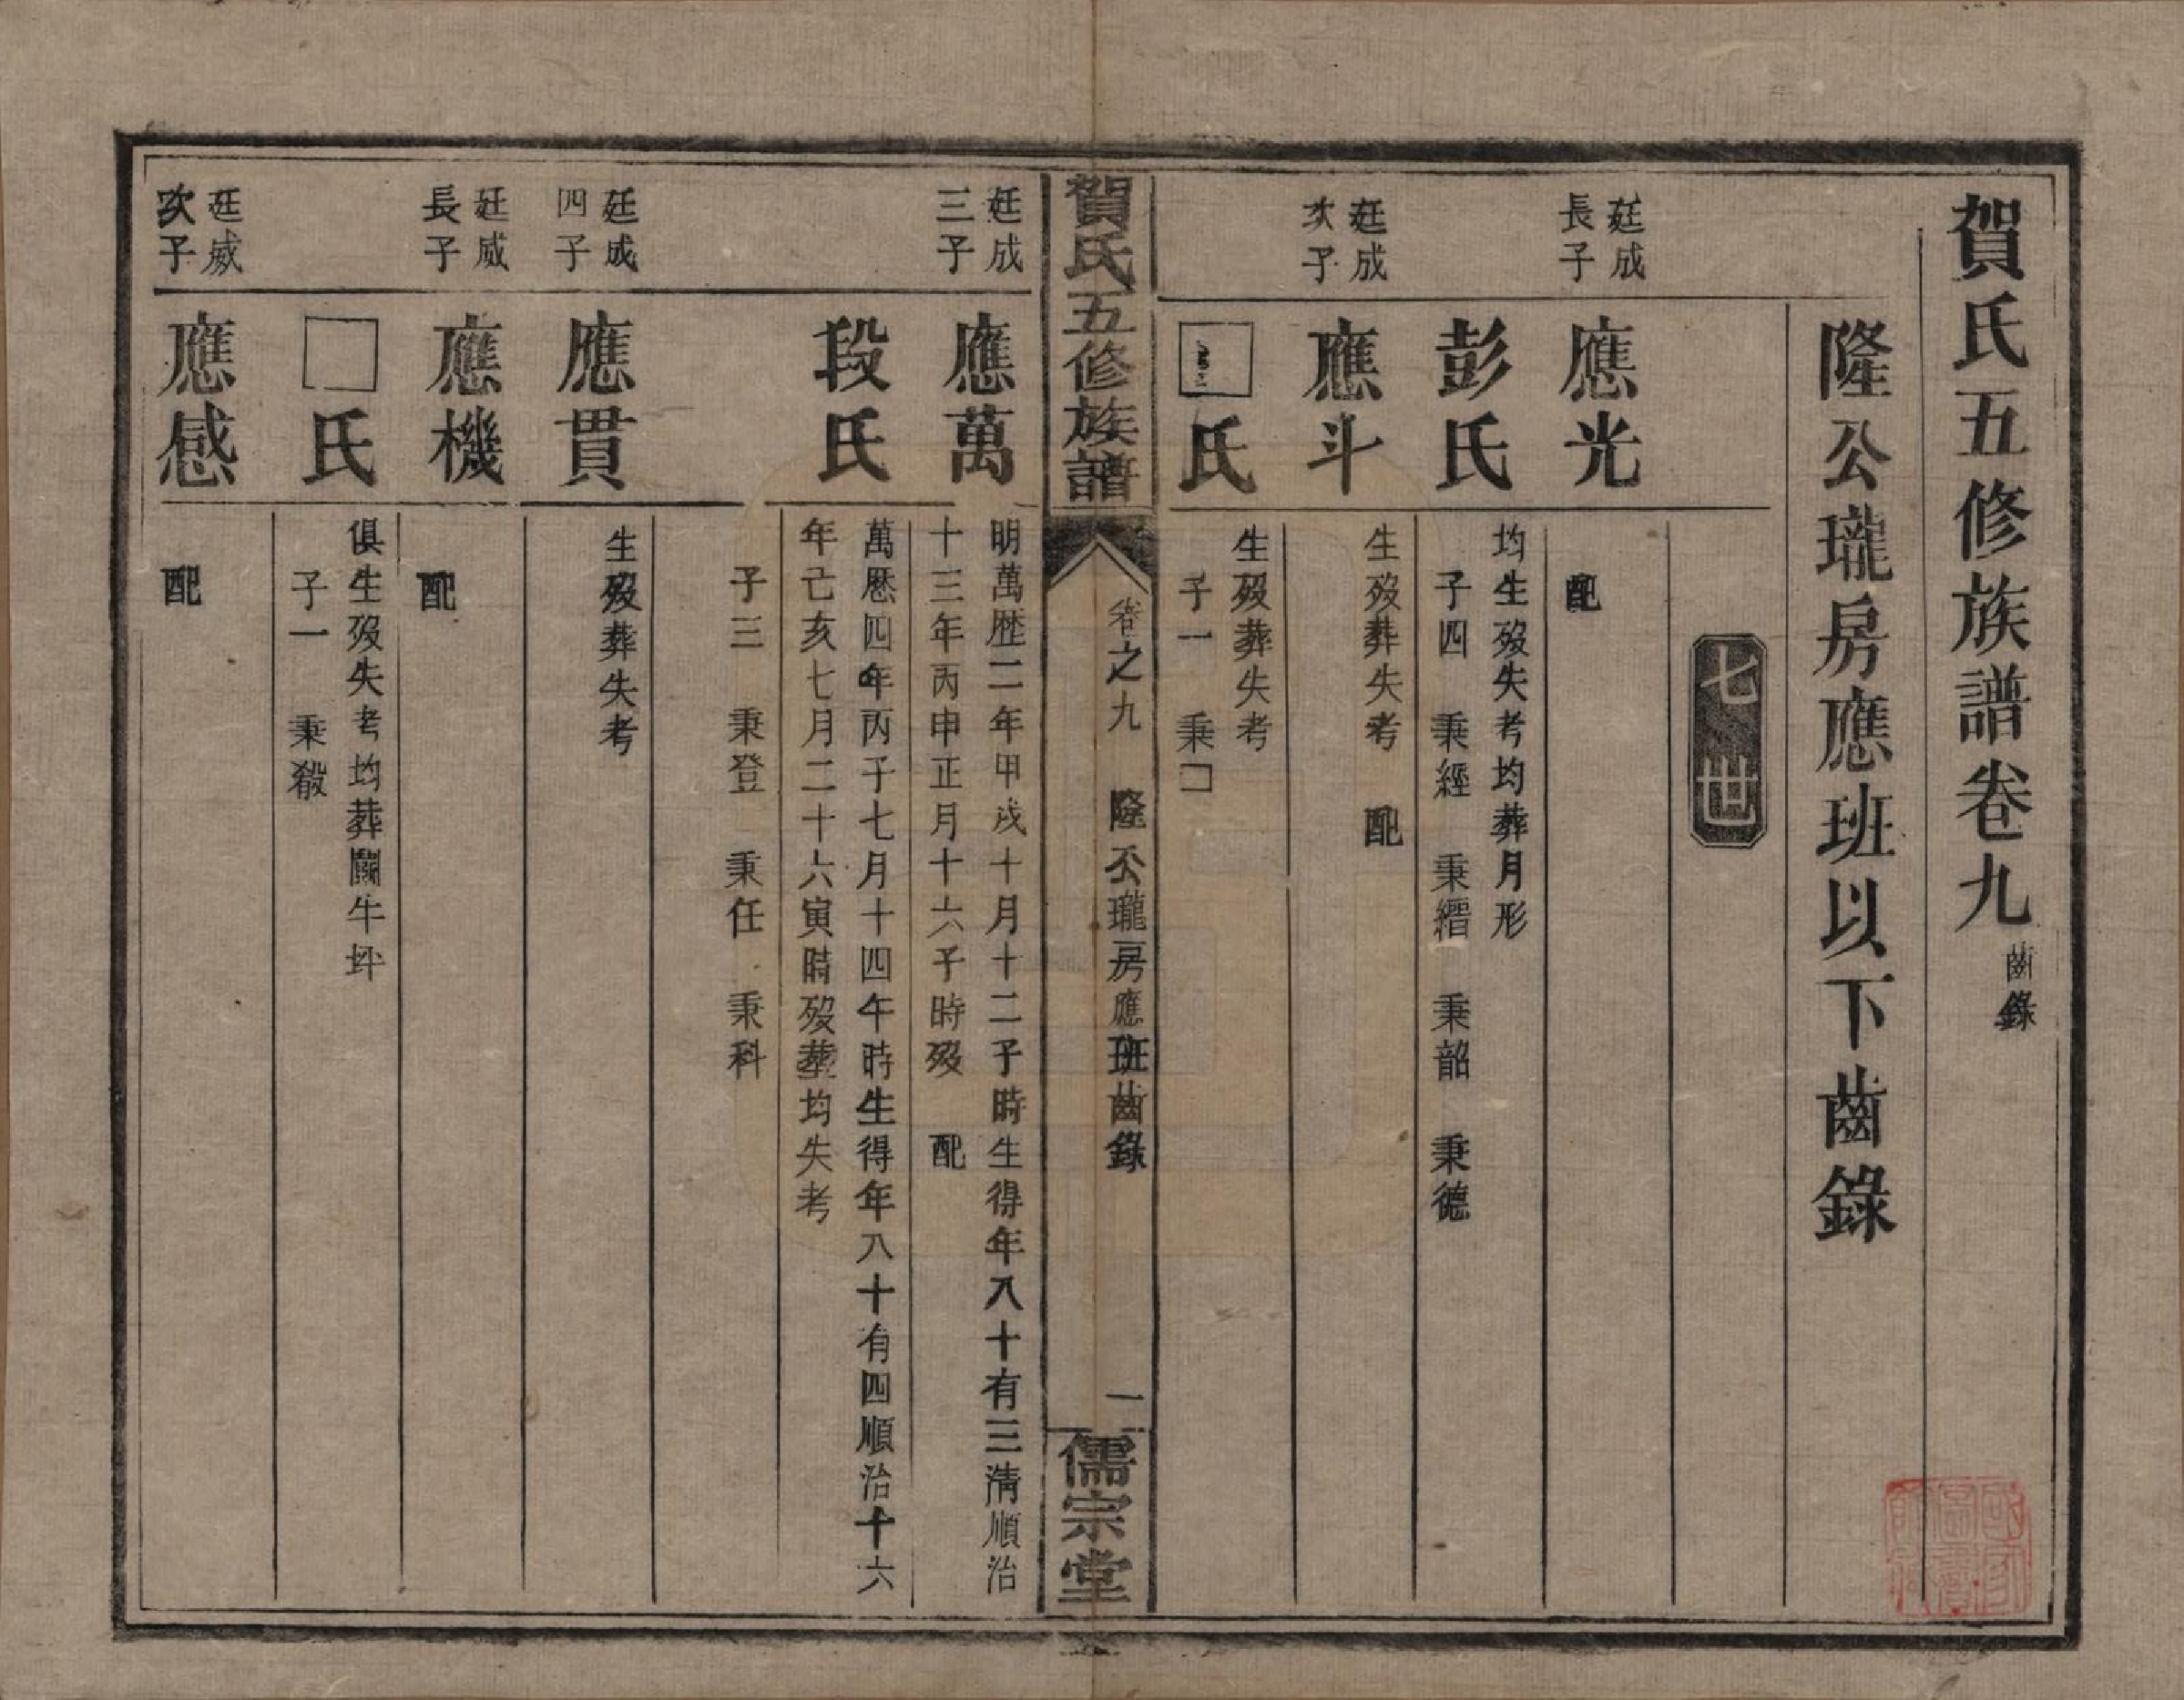 賀氏五修族譜卷九 齒錄
隆公瓏房應班以下齒錄
七世
廷成
長子
應光
配
彭氏
均生歿失考均葬月形
子四 秉經 秉縉 秉韶 秉德
廷成
次子
應斗
生歿葬失考 配
□氏
生歿葬失考
子一 秉□
賀氏五修族譜
卷之九 隆公瓏房應班齒錄
一
儒宗堂
廷成
三子
應萬
明萬歷二年甲戌十月十二子時生得年八十有三清順治
十三年丙申正月十六子時歿 配
段氏
萬歷四年丙子七月十四午時生得年八十有四順治十六
年己亥七月二十六寅時歿葬均失考
子三 秉登 秉任 秉科
廷成
四子
應貫
生歿葬失考
廷威
長子
應機
配
□氏
俱生歿失考均葬關牛坪
子一 秉毅
廷威
次子
應感
配